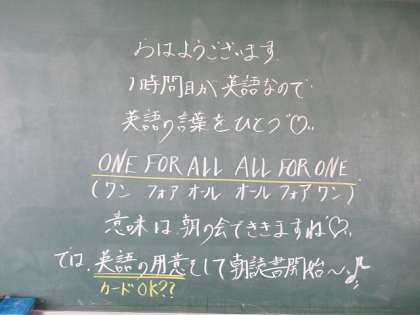 おはようございます。
1時間目が英語なので
英語の言葉をひとつ♡。
ONE FOR ALL ALL FOR ONE.
(ワン フォア オール オール フォア ワン)
意味は朝の会できききますね♡。
では、英語の用意をして朝読書開始〜♪
カードOK??